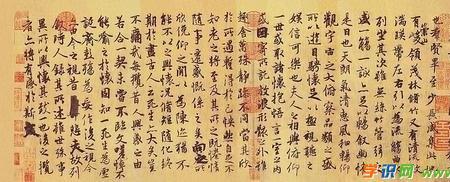 也羣賢畢至少長咸集此
有崇山峻領茂林脩竹又有清流激
湍暎帶左右引以為流觴曲水
列坐其次雖無絲竹管弦之
盛一觴一詠亦足以暢敘幽情
是日也天朗氣清惠風和暢仰
觀宇宙之大俯察品類之盛
所以遊目騁懷足以極視聽之
娛信可樂也夫人之相與俯仰
一世或取諸懷抱悟言一室之內
或因寄所託放浪形骸之外雖
趣舍萬殊靜躁不同當其欣
於所遇蹔得於己怏然自足不
知老之將至及其所之既惓情
隨事遷感慨係之矣向之所
欣俛仰之間以為陳迹猶不
能不以之興懷況脩短隨化終
期於盡古人云死生亦大矣豈
不痛哉每攬昔人興感之由
若合一契未嘗不臨文嗟悼不
能喻之於懷固知一死生為虛
誕齊彭殤為妄作後之視今
亦由今之視昔悲夫故列
敘時人錄其所述雖世殊事
異所以興懷其致一也後之攬
者亦將有感於斯
学识网